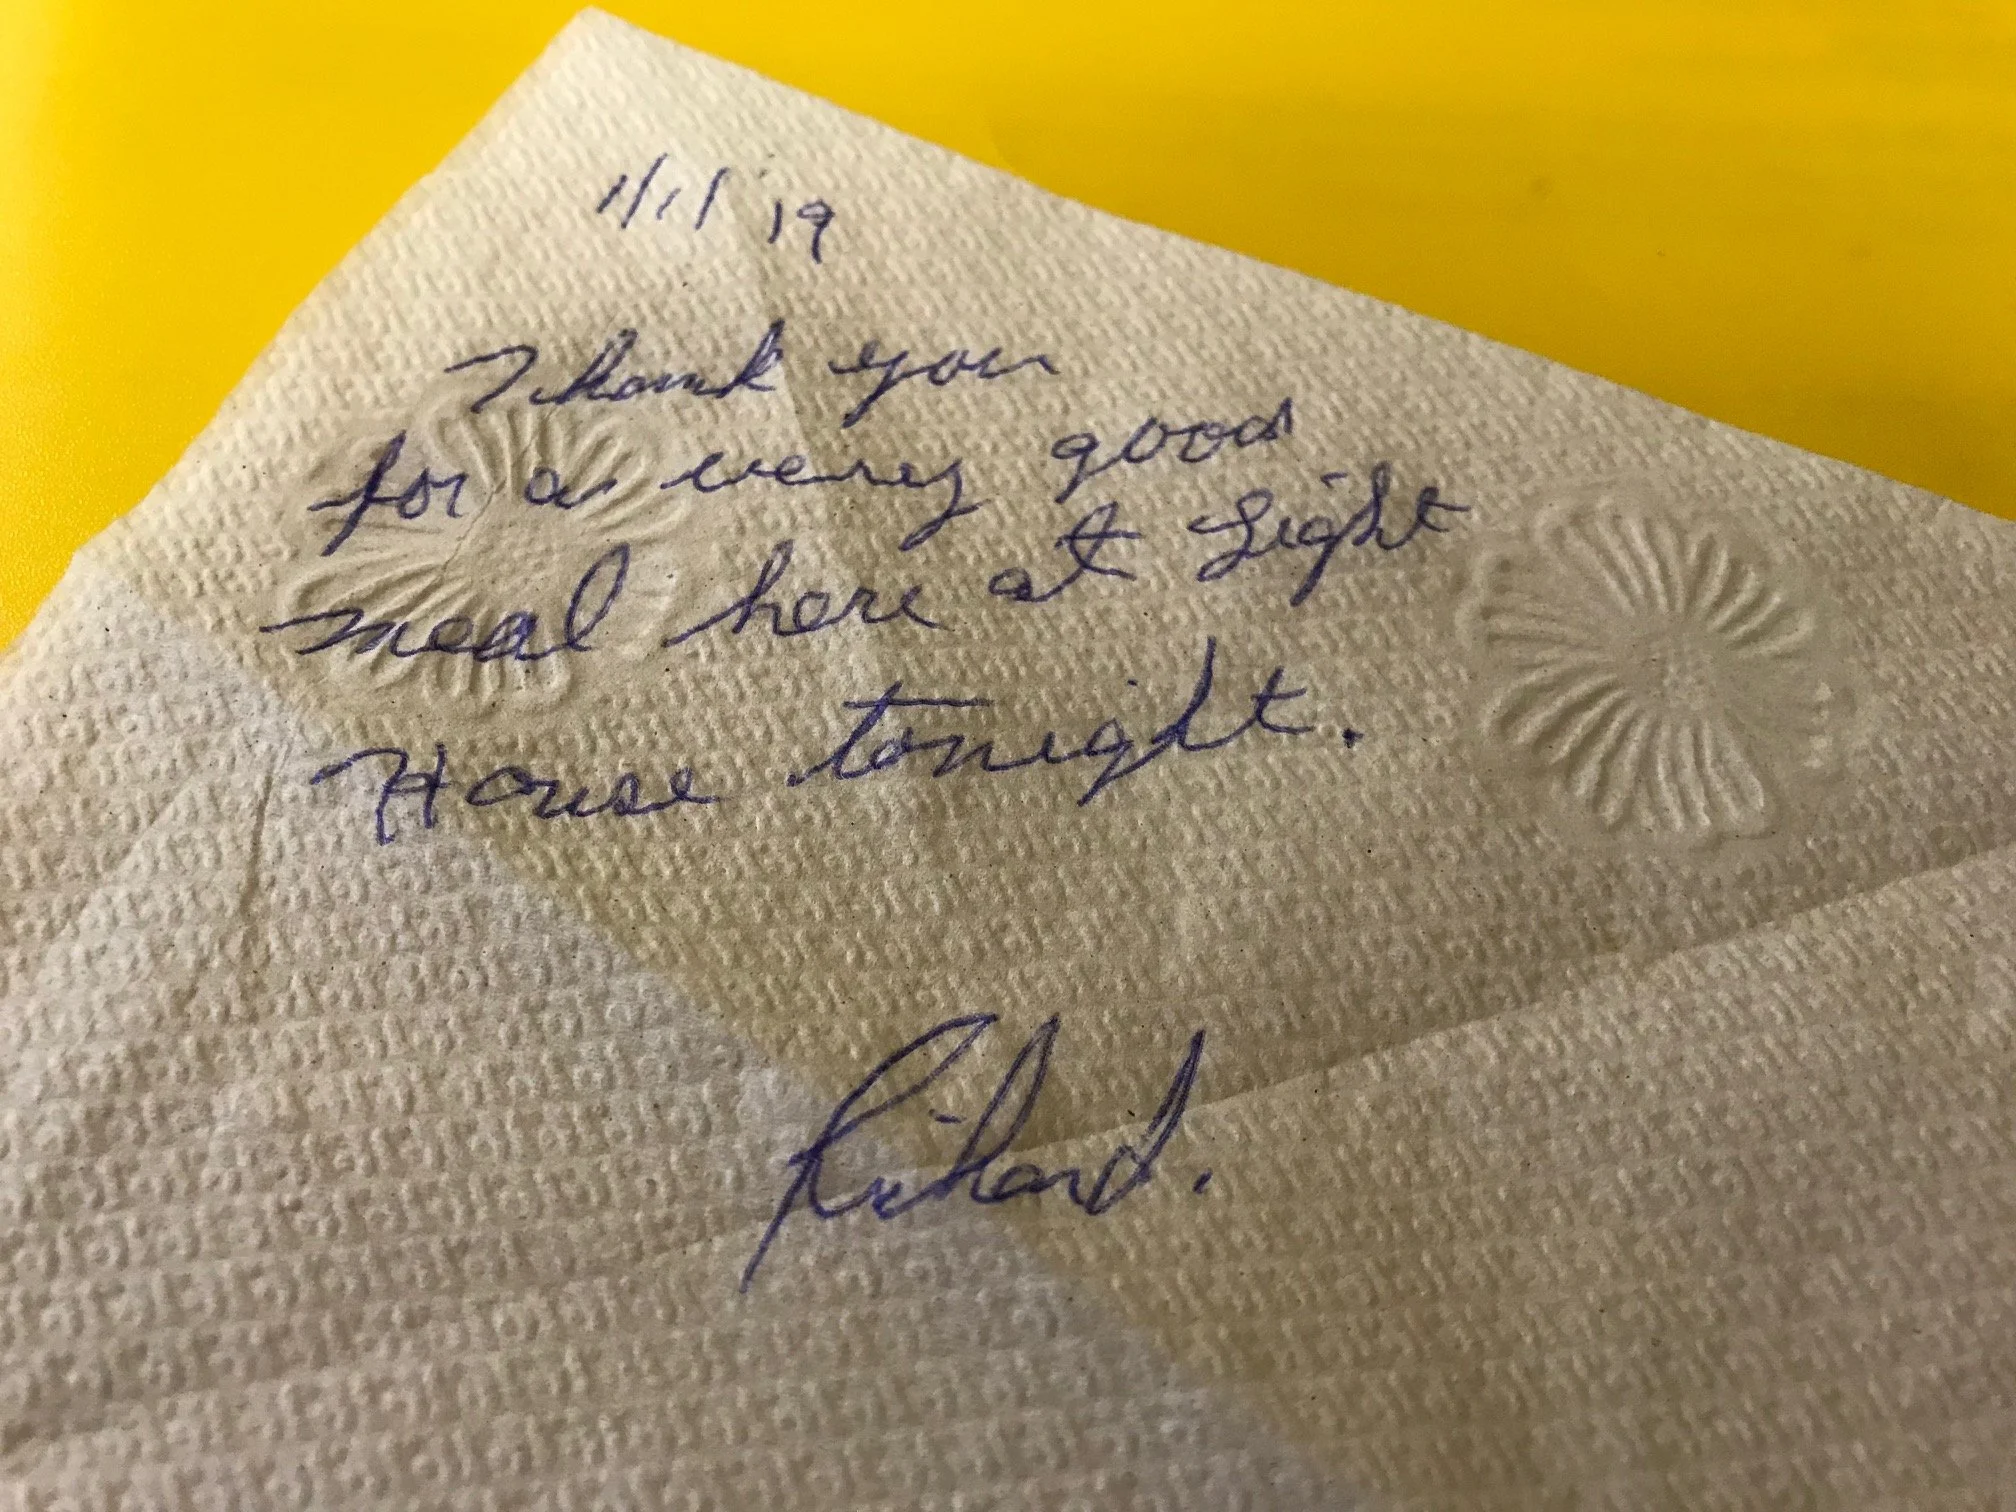 1/1/'19
Thank you
for a very good
meal here at Light
House tonight.
Richard.